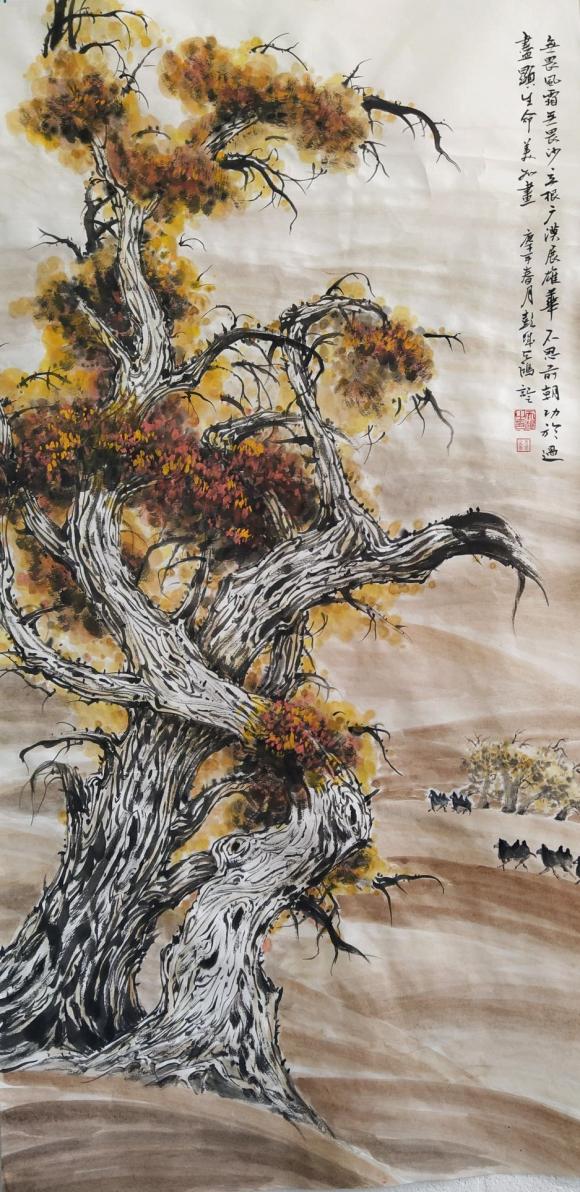 無畏風霜無畏沙立根广漠展雄華不思前朝功於過
盡顯生命美如畫 庚子春月彭